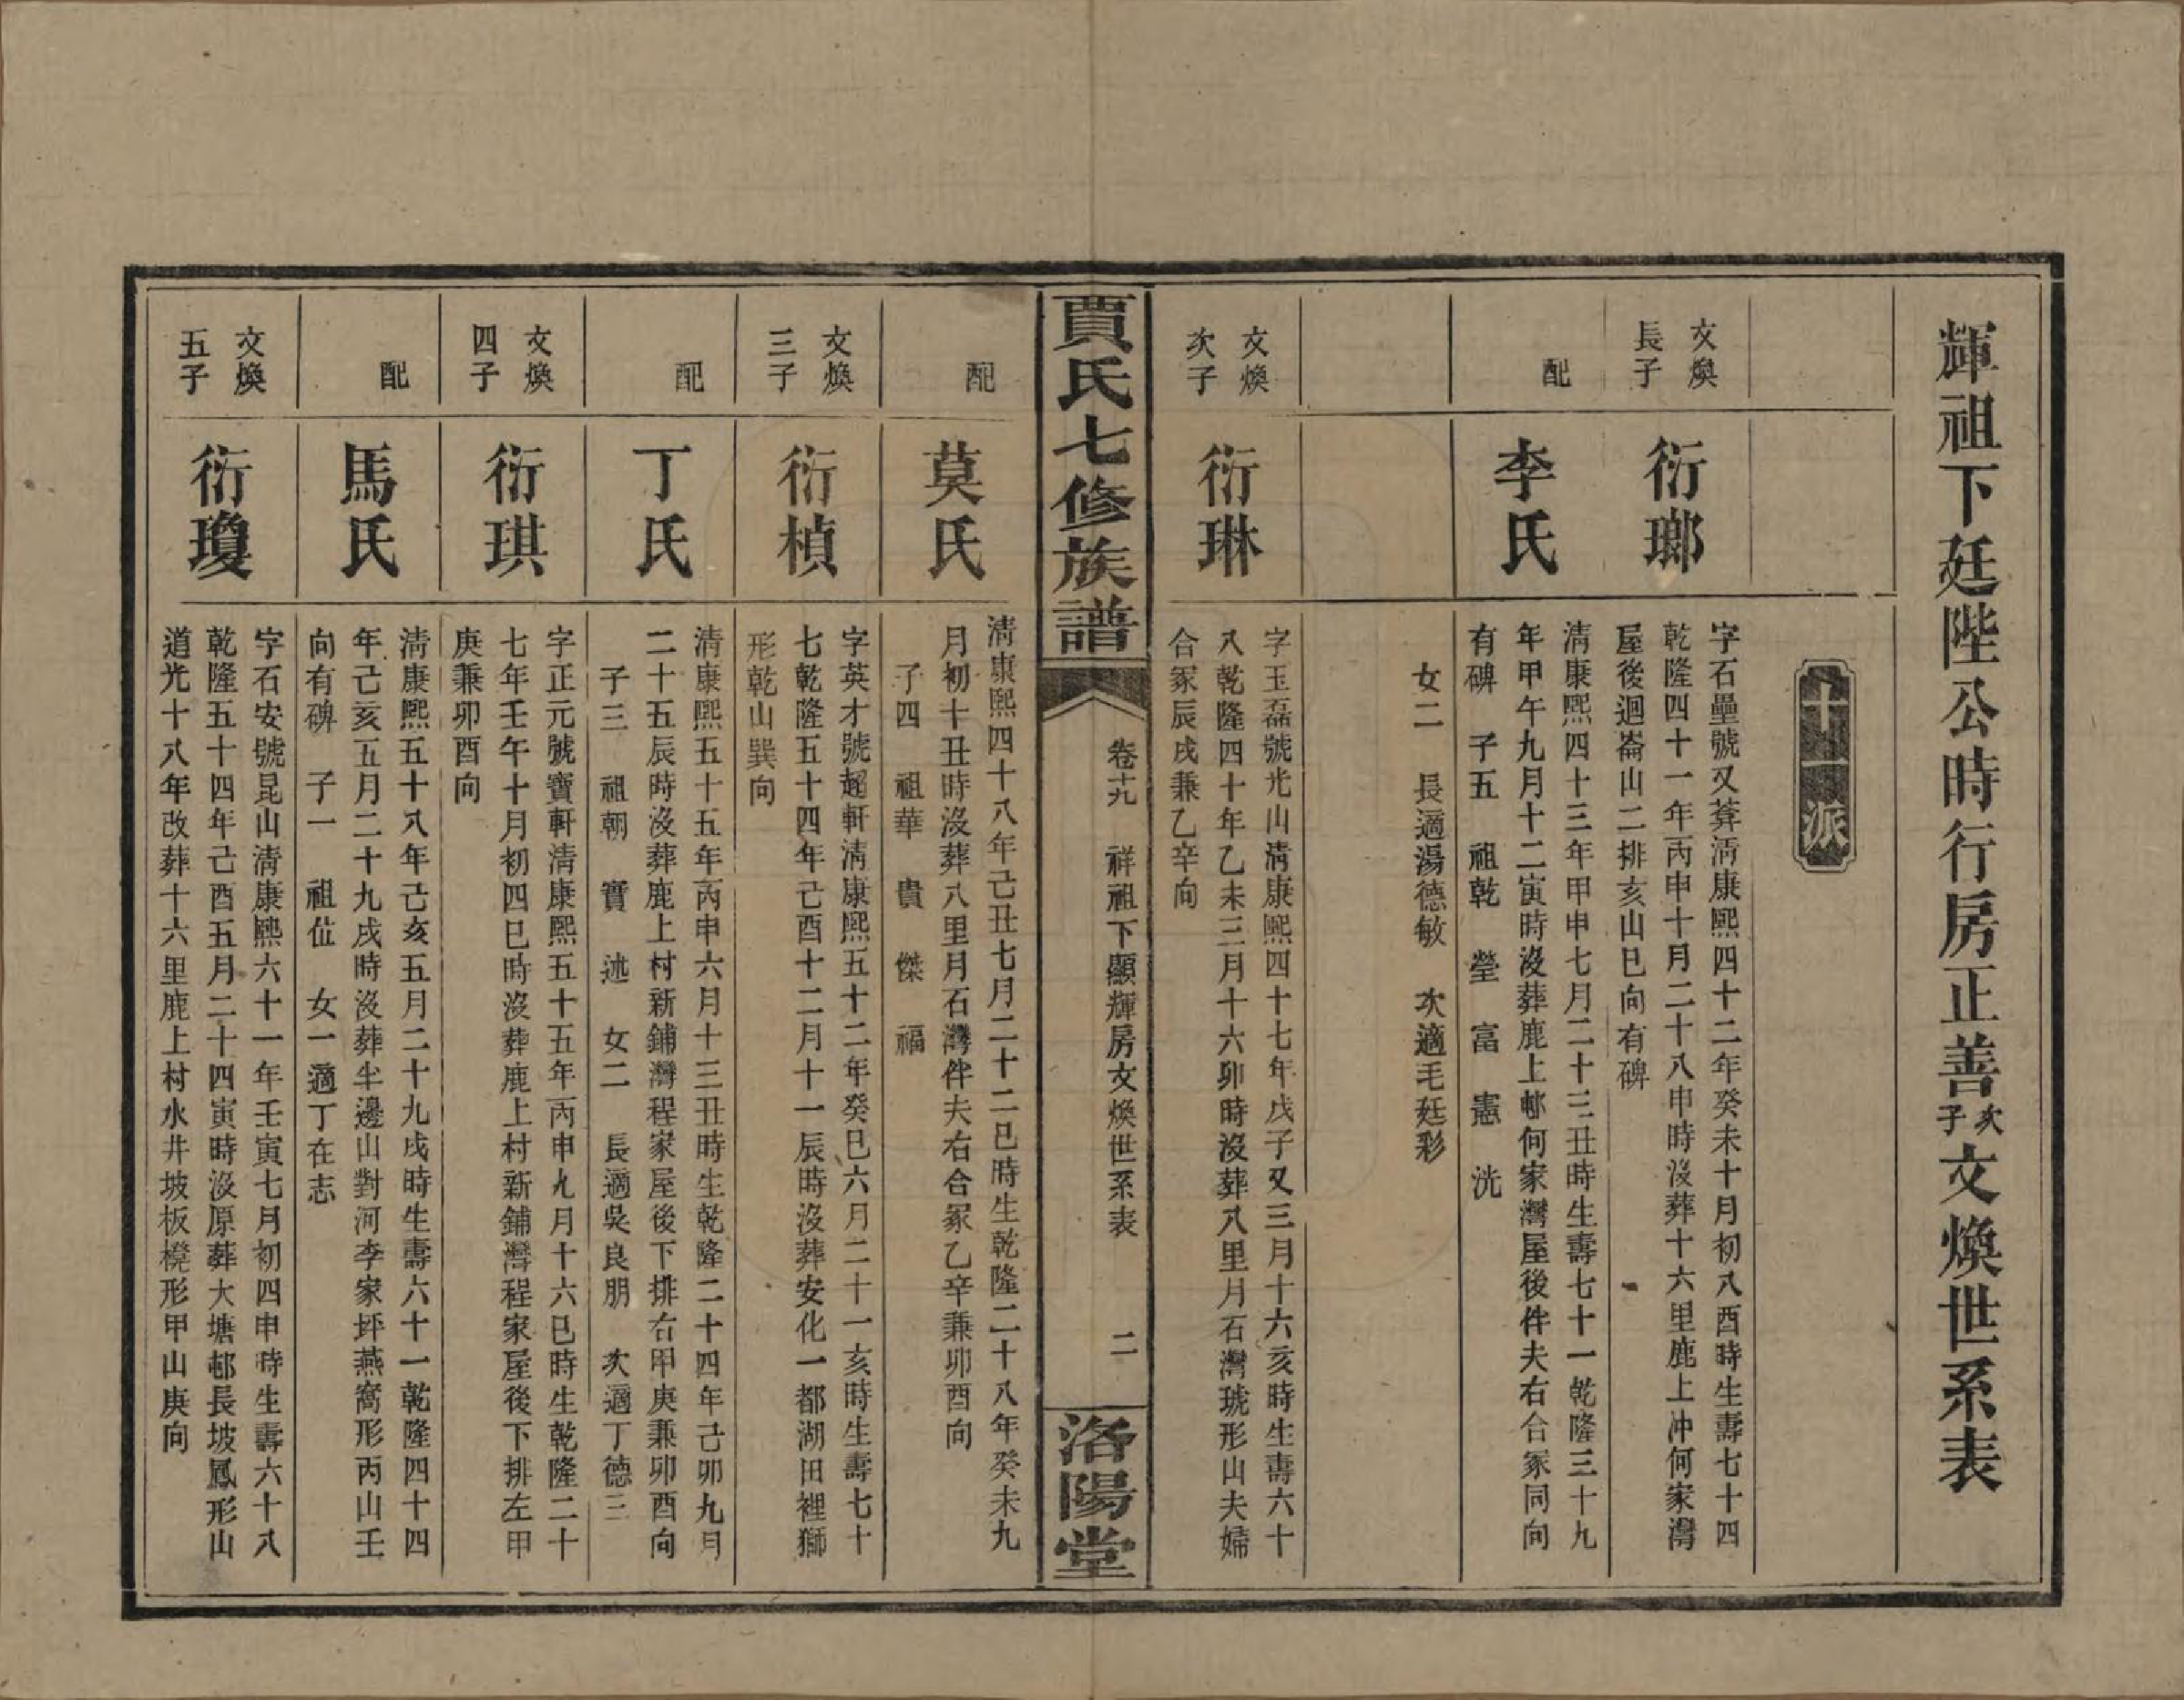 輝祖下廷陛公時行房正善次子文煥世系表
十一派
文煥
長子
衍瑯
字石壘號又葊淸康熙四十二年癸未十月初八酉時生壽七十四
乾隆四十一年丙申十月二十八申時沒葬十六里鹿上冲何家灣
屋後迴崙山二排亥山巳向有碑
配
李氏
淸康熙四十三年甲申七月二十三丑時生壽七十一乾隆三十九
年甲午九月十二寅時沒葬鹿上邨何家灣屋後伴夫右合冢同向
有碑 子五 祖乾 瑩 富 憲 洸
女二 長適湯德敏 次適毛廷彩
文煥
次子
衍琳
字玉磊號光山淸康熙四十七年戊子又三月十六亥時生壽六十
八乾隆四十年乙未三月十六卯時沒葬八里月石灣琥形山夫婦
合冢辰戌兼乙辛向
賈氏七修族譜
卷十九 祥祖下顯輝房文煥世系表 二
洛陽堂
配
莫氏
淸康熙四十八年己丑七月二十二巳時生乾隆二十八年癸未九
月初十丑時沒葬八里月石灣伴夫右合冢乙辛兼卯酉向
子四 祖華 貴 傑 福
文煥
三子
衍楨
字英才號超軒淸康熙五十二年癸巳六月二十一亥時生壽七十
七乾隆五十四年己酉十二月十一辰時沒葬安化一都湖田裡獅
形乾山巽向
配
丁氏
淸康熙五十五年丙申六月十三丑時生乾隆二十四年己卯九月
二十五辰時沒葬鹿上村新鋪灣程家屋後下排右甲庚兼卯酉向
子三 祖朝 寶 述 女二 長適吳良朋 次適丁德三
文煥
四子
衍琪
字正元號寶軒淸康熙五十五年丙申九月十六巳時生乾隆二十
七年壬午十月初四巳時沒葬鹿上村新鋪灣程家屋後下排左甲
庚兼卯酉向
配
馬氏
淸康熙五十八年己亥五月二十九戌時生壽六十一乾隆四十四
年己亥五月二十九戌時沒葬半邊山對河李家坪燕窩形丙山壬
向有碑 子一 祖位 女一適丁在志
文煥
五子
衍瓊
字石安號昆山淸康熙六十一年壬寅七月初四申時生壽六十八
乾隆五十四年己酉五月二十四寅時沒原葬大塘邨長坡鳳形山
道光十八年改葬十六里鹿上村水井坡板櫈形甲山庚向